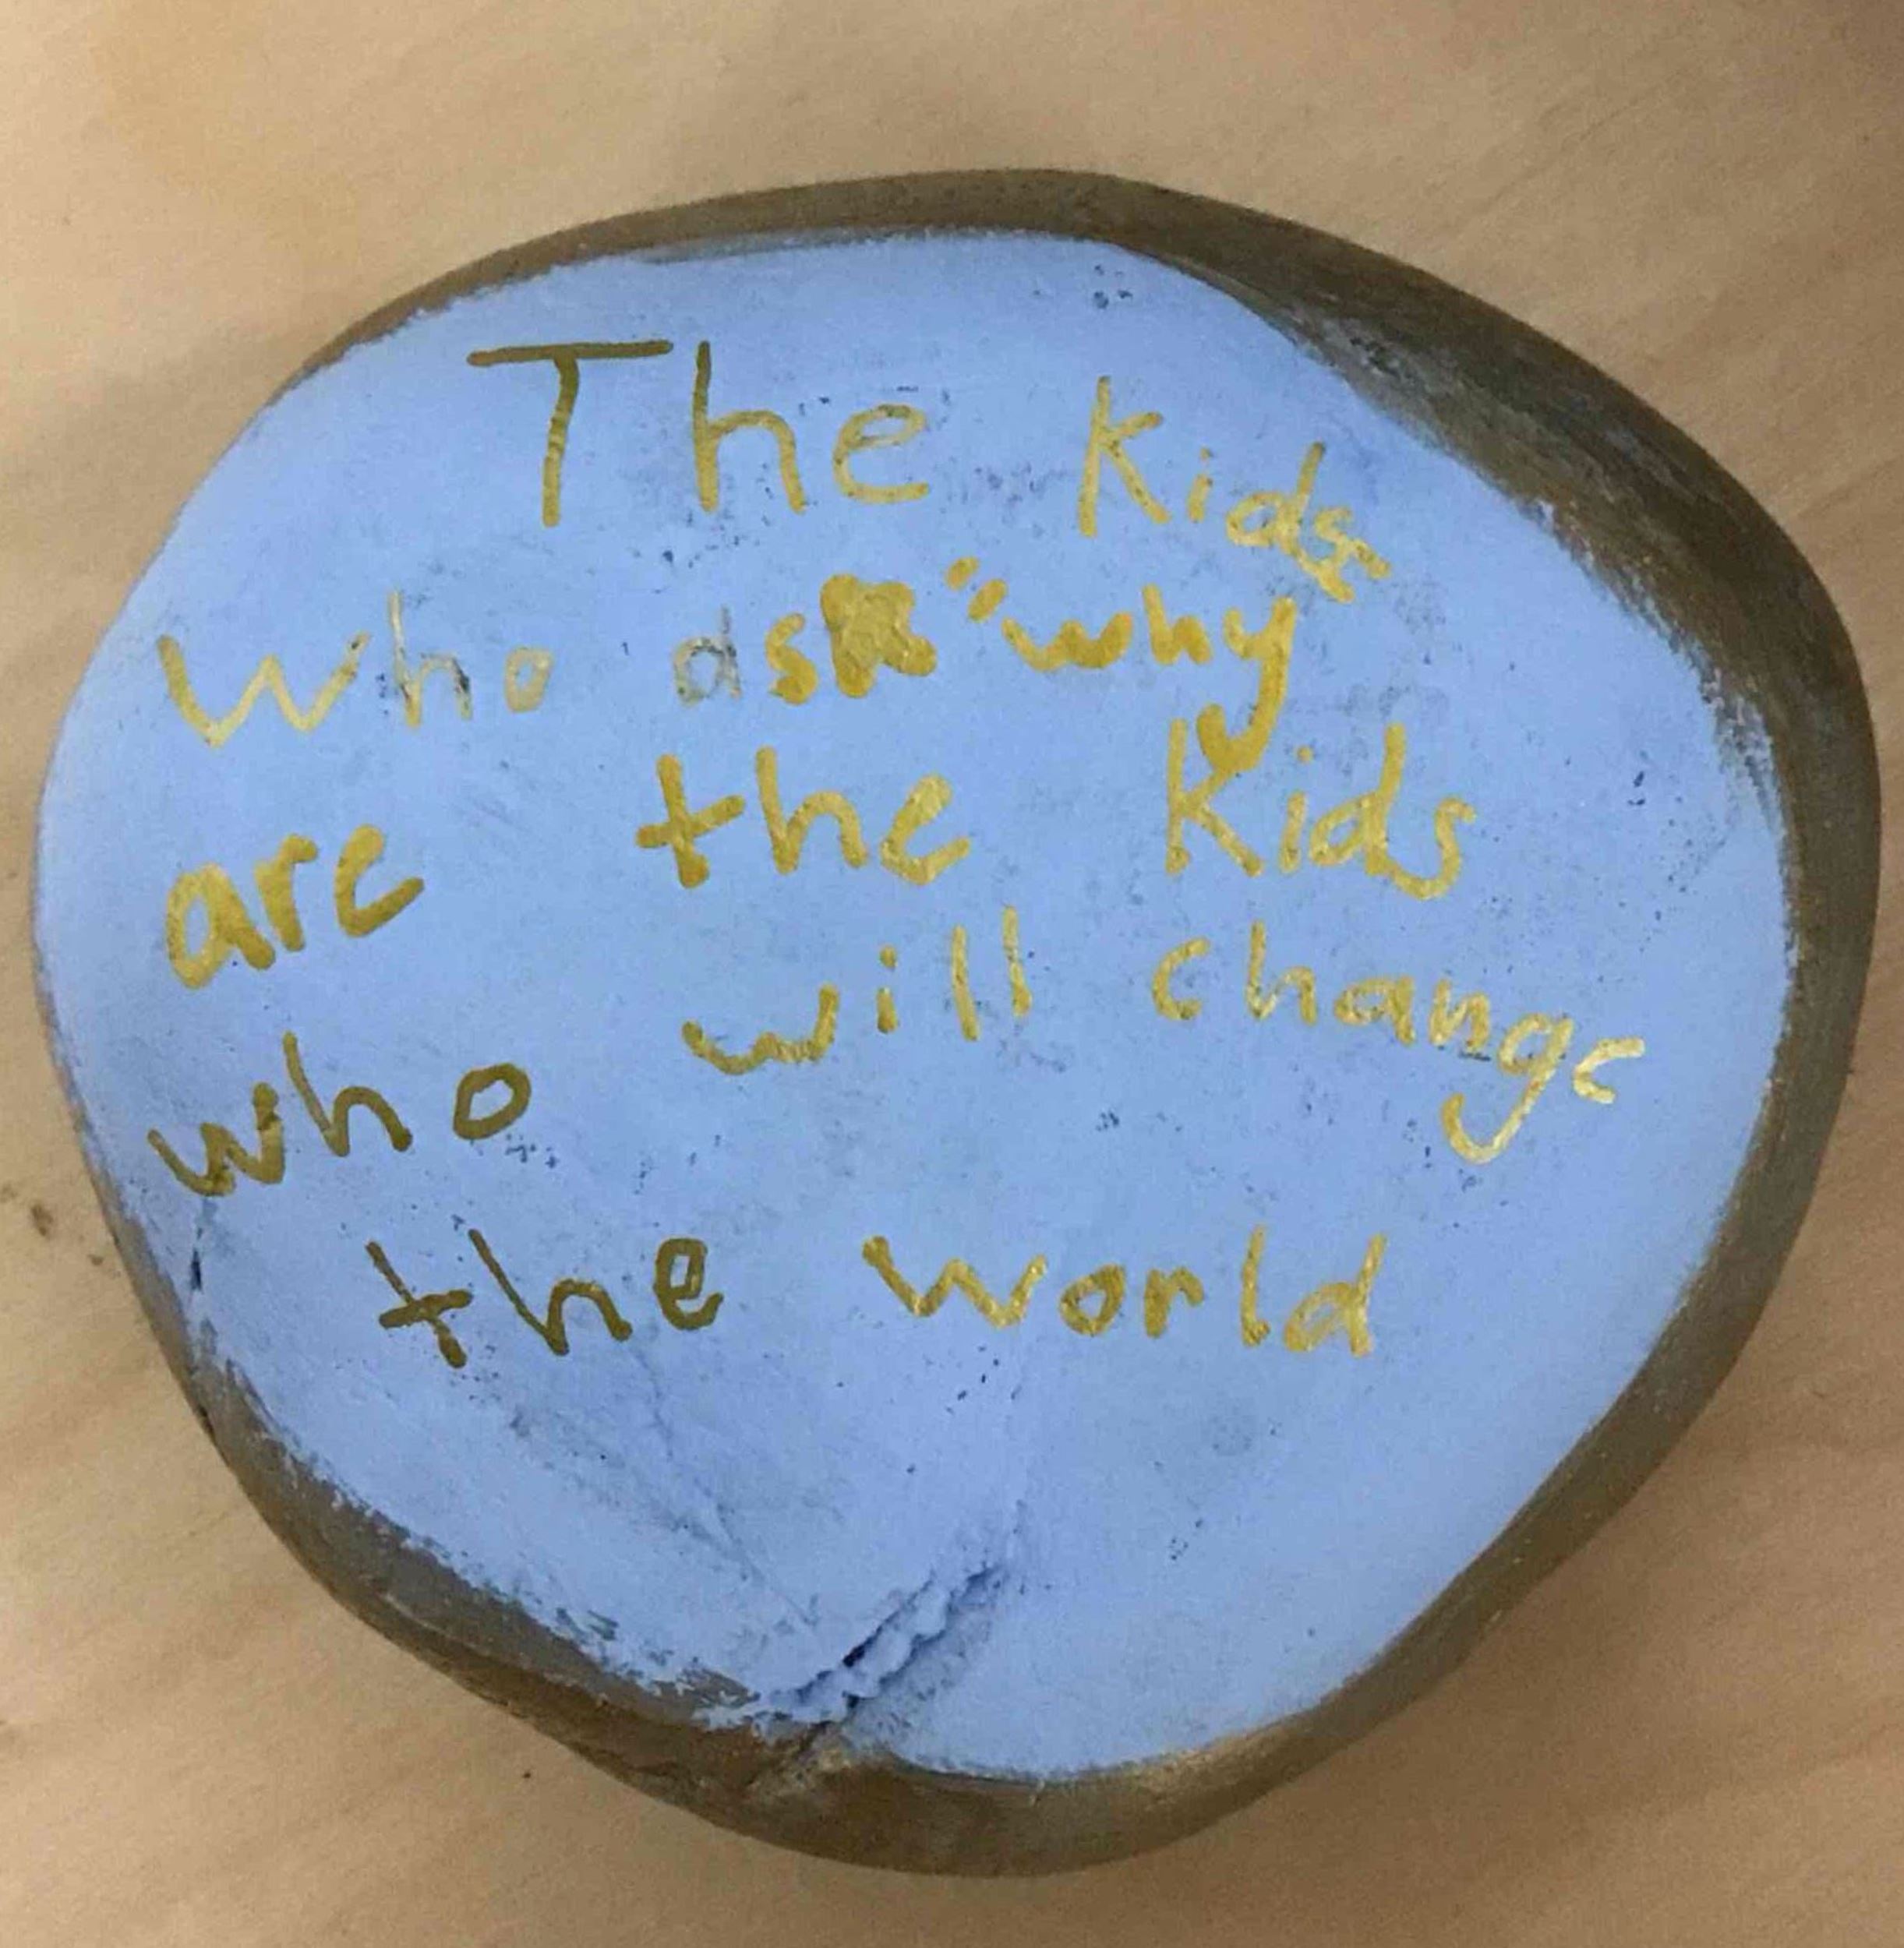 The kids
who ask "why"
are the kids
who will change
the world